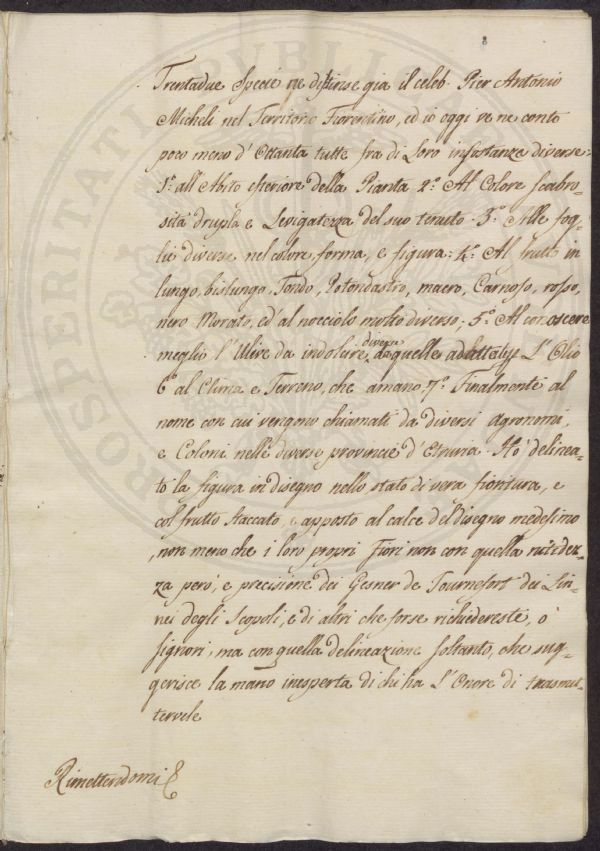 Trentadue Specie ne distinse gia il celeb. Pier Antonio
Micheli nel Territorio Fiorentino, ed io oggi ve ne conto
poco meno d'Ottanta tutte fra di Loro in sustanza diverse:
1.º all'Abito esteriore della Pianta 2.º Al Colore Scabro-
sità drupla e Levigatezza del suo tessuto. 3.º Alle fog-
lie diverse nel colore, forma, e figura: 4.º Al frutto in
lungo, bislungo, Tondo, Rotondastro, macro, Carnoso, rosso,
nero Morato, ed al nocciolo molto diverso; 5.º Al conoscere
diverse
meglio l'Ulive da indolcire, da quelle adatte L'Olio
6.º al Clima e Terreno, che amano. 7.º Finalmente al
nome con cui vengono chiamati da diversi agronomi,
e Coloni nelle diverse provincie d'Etruria. Hò delinea-
tò la figura in disegno nello stato di vera fioritura, e
col frutto staccato, e apposto al calce del disegno medesimo
, non meno che i loro propri Fiori non con quella nitidez-
za però, e precisione dei Gesner de Tournefort dei Lin-
nei degli Scopoli, e di altri che forse richiedereste, ò
signori, ma con quella delineazione soltanto, che sug-
gerisce la mano inesperta di chi ha L'Onore di trasmet-
tervele
Rimettendomi
PROSPERITATI PUBLICAE